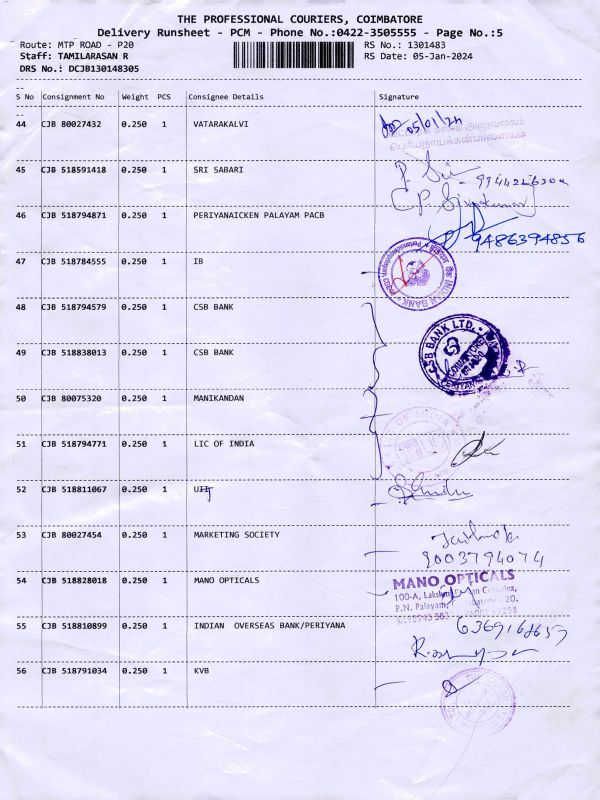 THE PROFESSIONAL COURIERS, COIMBATORE
Delivery Runsheet - PCM - Phone No.:0422-3505555 - Page No.:5
Route: MTP ROAD - P20 RS No.: 1301483
Staff: TAMILARASAN R RS Date: 05-Jan-2024
DRS No.: DCJB130148305
S No Consignment No Weight PCS Consignee Details Signature
44 CJB 80027432 0.250 1 VATARAKALVI 05/01/24
அலுவலகம்
பெரியநாயக்கன்பாளையம்
45 CJB 518591418 0.250 1 SRI SABARI
C.P. Sivakumar
46 CJB 518794871 0.250 1 PERIYANAICKEN PALAYAM PACB
9486394856
47 CJB 518784555 0.250 1 IB
INDIAN BANK
48 CJB 518794579 0.250 1 CSB BANK
CSB BANK LTD.
49 CJB 518838013 0.250 1 CSB BANK
50 CJB 80075320 0.250 1 MANIKANDAN
51 CJB 518794771 0.250 1 LIC OF INDIA
52 CJB 518811067 0.250 1
53 CJB 80027454 0.250 1 MARKETING SOCIETY
9003794074
54 CJB 518828018 0.250 1 MANO OPTICALS
MANO OPTICALS
100-A, Complex,
P.N. Palayam, - 20.
55 CJB 518810899 0.250 1 INDIAN OVERSEAS BANK/PERIYANA
56 CJB 518791034 0.250 1 KVB